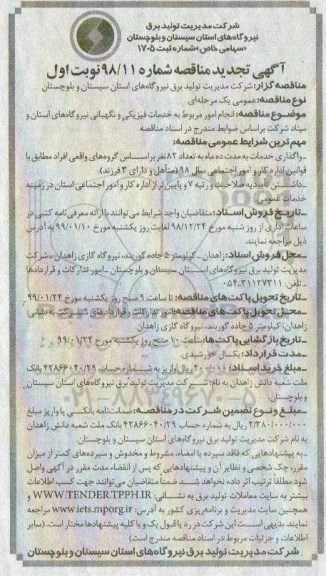 شرکت مدیریت تولید برق
نیروگاه‌های استان سیستان و بلوچستان
«سهامی خاص» شماره ثبت ۱۷۰۵
آگهی تجدید مناقصه شماره ۹۸/۱۱ نوبت اول
مناقصه گزار: شرکت مدیریت تولید برق نیروگاه‌های استان سیستان و بلوچستان
نوع مناقصه: عمومی یک مرحله‌ای
موضوع مناقصه: انجام امور مربوط به خدمات فیزیکی و نگهبانی نیروگاه‌های استان و
ستاد شرکت براساس ضوابط مندرج در اسناد مناقصه
مهم ترین شرایط عمومی مناقصه:
ـ واگذاری خدمات به مدت ده ماه به تعداد ۸۲ نفر براساس گروه‌های واقعی افراد مطابق با
قوانین اداره کار و امور اجتماعی سال ۹۸ (متأهل و دارای ۳ فرزند)
ـ داشتن تأییدیه صلاحیت و رتبه ۷ و پایین تر از اداره کار و امور اجتماعی استان در زمینه
خدمات عمومی
ـ تاریخ فروش اسناد: متقاضیان واجد شرایط می‌توانند با ارائه معرفی‌نامه کتبی در
ساعات اداری از روز شنبه مورخ ۹۸/۱۲/۲۴ لغایت روز یکشنبه مورخ ۹۹/۰۱/۱۰ به آدرس
ذیل مراجعه نمایند.
ـ محل فروش اسناد: زاهدان - کیلومتر ۵ جاده گوربند، نیروگاه گازی زاهدان - شرکت
مدیریت تولید برق نیروگاه‌های استان سیستان و بلوچستان - امور تدارکات و قراردادها
- تلفن: ۳۱۱۳۷۳۱۱-۰۵۴
ـ تاریخ تحویل پاکت های مناقصه: تا ساعت ۹ صبح روز یکشنبه مورخ ۹۹/۰۱/۲۴
ـ محل تحویل پاکت های مناقصه: امور تدارکات و قراردادهای شرکت به نشانی
زاهدان: کیلومتر ۵ جاده گوربند، نیروگاه گازی زاهدان
ـ تاریخ بازگشایی پاکت‌ها: ساعت ۱۰ صبح روز یکشنبه مورخ ۹۹/۰۱/۲۴
ـ مدت قرارداد: یکسال خورشیدی
ـ مبلغ خرید اسناد: ریال واریز به شماره حساب ۴۲۸۶۶۱۴۰/۲۹ بانک
ملت شعبه دانش زاهدان به نام: شرکت مدیریت تولید برق نیروگاه‌های استان سیستان
و بلوچستان
ـ مبلغ و نوع تضمین شرکت در مناقصه: ضمانتنامه بانکی یا واریز مبلغ
۲/۳۸۰/۰۰۰/۰۰۰ ریال به شماره حساب ۴۲۸۶۶۰۴۰/۲۹ بانک ملت شعبه دانش زاهدان
به نام شرکت مدیریت تولید برق نیروگاه‌های استان سیستان و بلوچستان.
ـ به پیشنهادهایی که فاقد سپرده یا امضاء، مشروط و مخدوش و سپرده‌های کمتر از میزان
مقرر، چک شخصی و نظایر آن و پیشنهادهایی که پس از انقضاء مدت مقرر در آگهی واصل
شود مطلقاً ترتیب اثر داده نخواهد شد ضمنا متقاضیان می‌توانند جهت کسب اطلاعات
بیشتر به سایت معاملات تولید برق به نشانی: WWW.TENDER.TPPH.IR و
همچنین سایت مدیریت و برنامه‌ریزی کشور به آدرس: www.iets.mporg.ir مراجعه
نمایند. بدیهی است این شرکت در رد یا قبول یک و یا کلیه پیشنهادها مختار است. (سایر
اطلاعات و جزئیات مربوط در اسناد مناقصه مندرج است)
شرکت مدیریت تولید برق نیروگاه‌های استان سیستان و بلوچستان